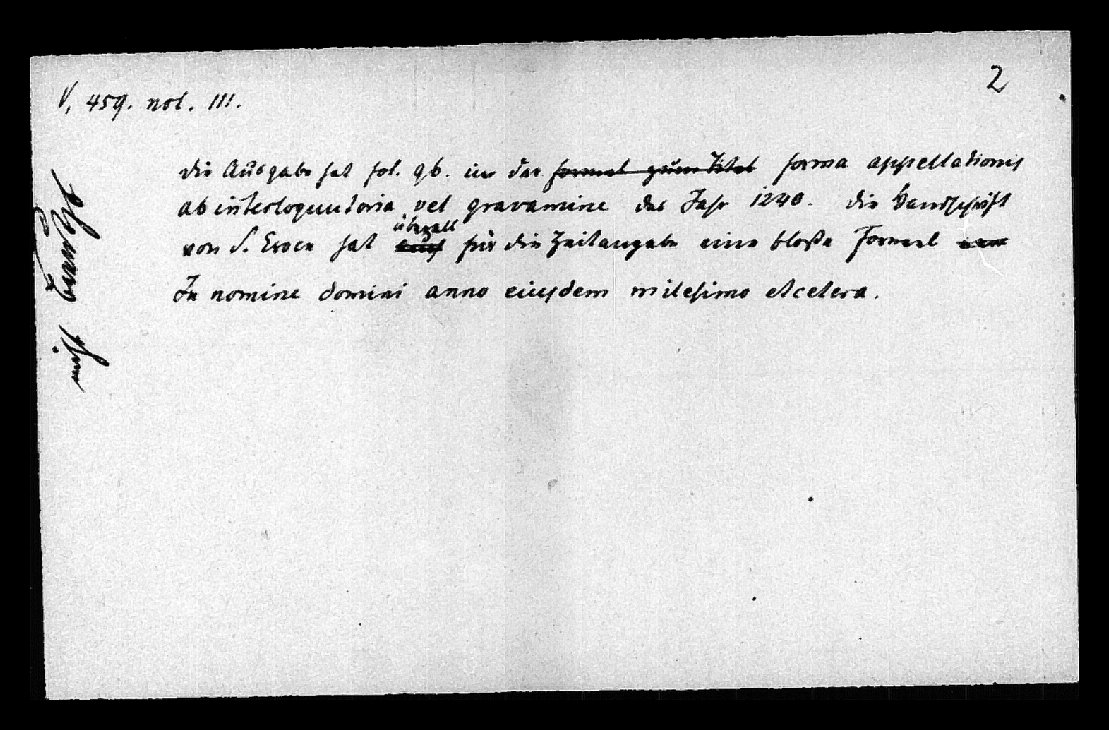 2
V, 459. not. III.
die Ausgabe hat fol. 9b. in der formel zum Titel forma appellationis
ab interloquutoria vel gravamine das Jahr 1240. die Handschrift
von S. Croce hat überall für die Zeitangabe eine bloße Formel
In nomine domini anno eiusdem milesimo etcetera.
nicht benutzt